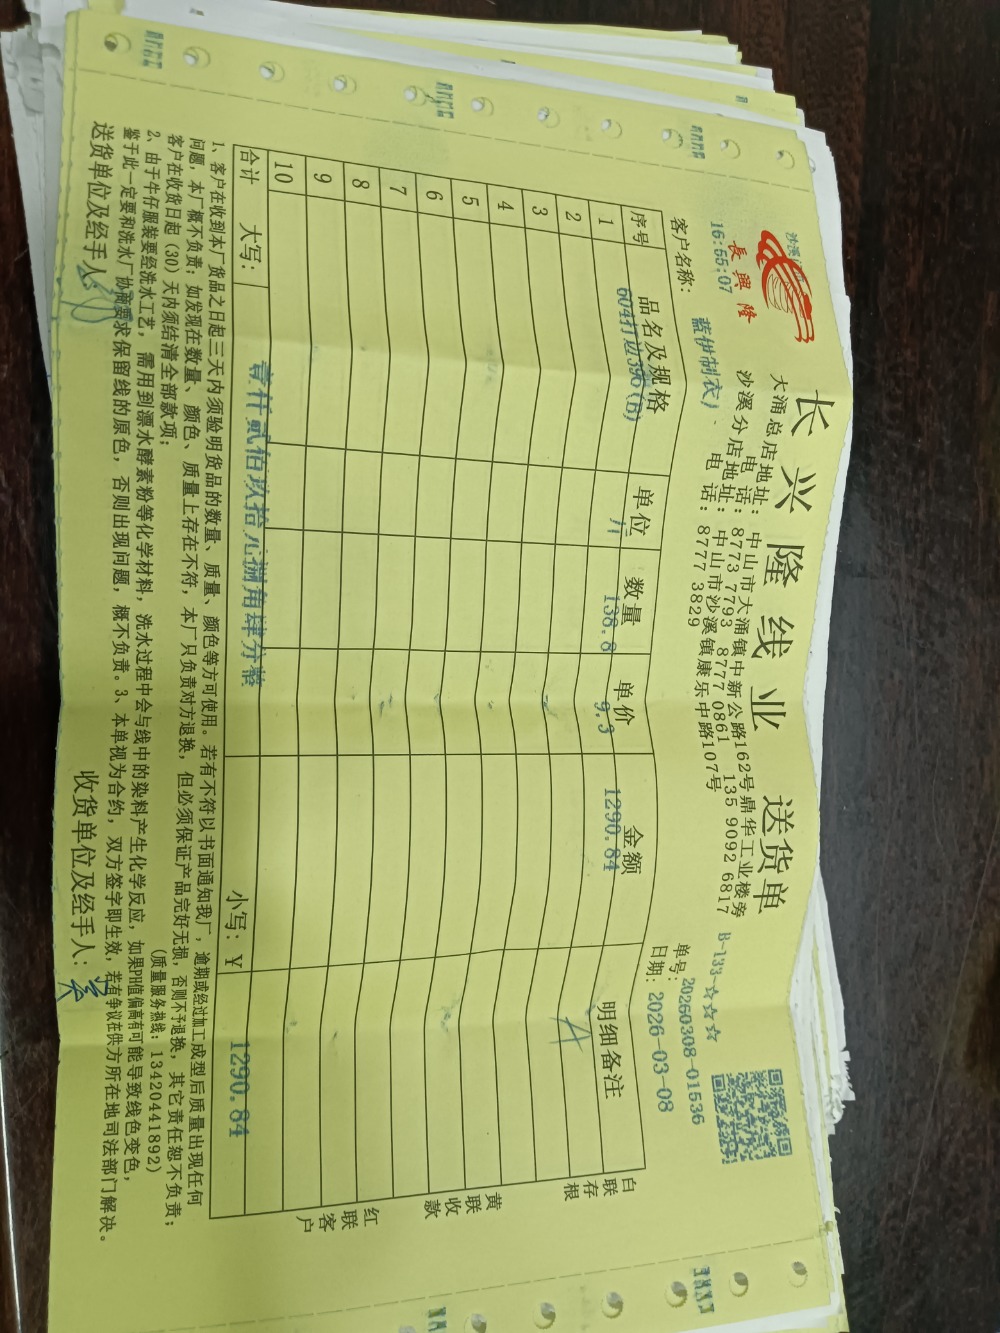 長興隆
长兴隆线业 送货单
大涌总店地址: 中山市大涌镇中新公路162号鼎华工业楼旁
电话: 8773 7793 8777 0861 135 9092 6817
沙溪分店地址: 中山市沙溪镇康乐中路107号
电话: 8777 3829
B-133-☆☆☆
16:55:07
单号: 20260308-01536
客户名称: 蓝伊制衣
日期: 2026-03-08
序号 品名及规格 单位 数量 单价 金额 明细备注
1 604打边396(B) 138.8 9.3 1290.84
2
3
4
5
6
7
8
9
10
合计 大写: 壹仟贰佰玖拾元捌角肆分整 小写: ¥ 1290.84
白联存根
黄联收款
红联客户
1、客户在收到本厂货品之日起三天内须验明货品的数量、质量、颜色等方可使用。若有不符以书面通知我厂,逾期或经过加工成型后质量出现任何
问题,本厂概不负责;如发现在数量、颜色、质量上存在不符,本厂只负责对方退换,但必须保证产品完好无损,否则不予退换,其它责任恕不负责;
客户在收货日起(30)天内须结清全部款项; (质量服务热线: 13420441892)
2、由于牛仔服装要经洗水工艺,需用到漂水酵素粉等化学材料,洗水过程中会与线中的染料产生化学反应,如果PH值偏高有可能导致线色变色,
鉴于此一定要和洗水厂协商要求保留线的原色,否则出现问题,概不负责。3、本单视为合约,双方签字即生效,若有争议在供方所在地司法部门解决。
送货单位及经手人: 收货单位及经手人: